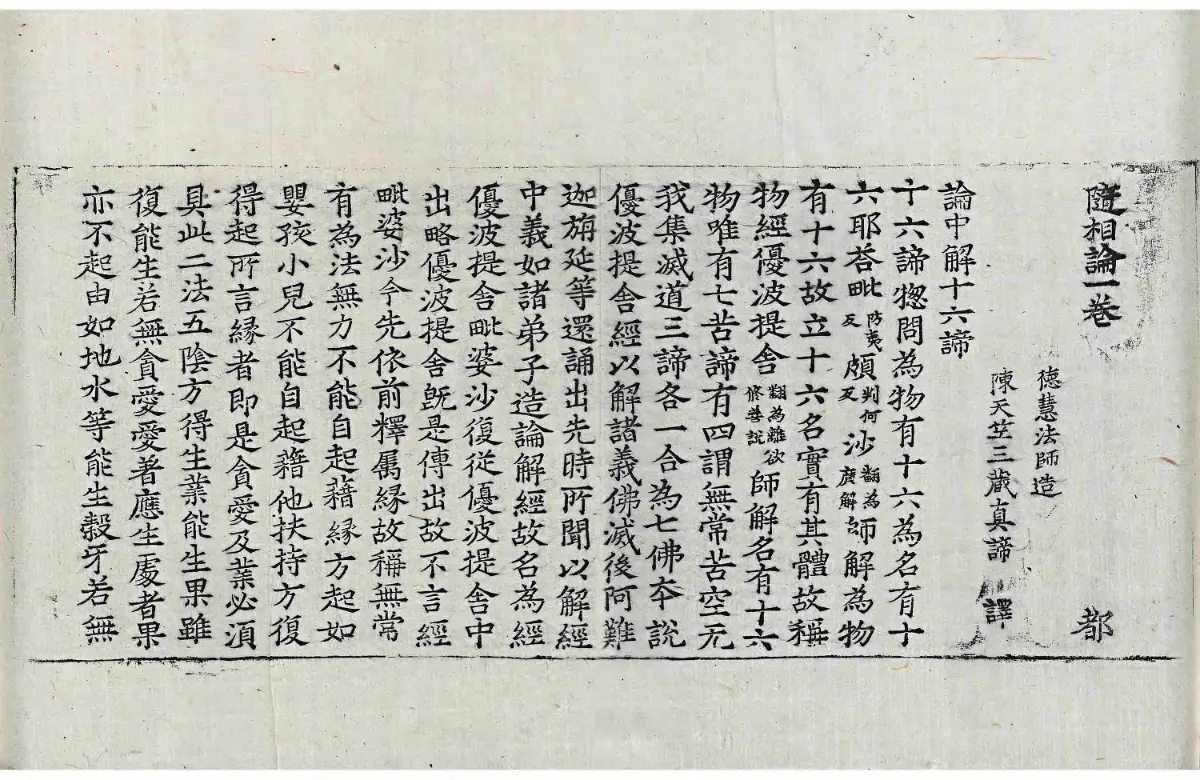 隨相論一卷
都
德慧法師造
陳天竺三藏真諦譯
論中解十六諦
十六諦揔問為物有十六為名有十
六耶荅毗防夷反頗判何反沙翻為廣解師解為物
有十六故立十六名實有其體故稱
物經優波提舍翻為離欲修善說師解名有十六
物唯有七苦諦有四謂無常苦空无
我集滅道三諦各一合為七佛夲說
優波提舍經以解諸義佛滅後阿難
迦旃延等還誦出先時所聞以解經
中義如諸弟子造論解經故名為經
優波提舍毗婆沙復從優波提舍中
出略優波提舍旣是傳出故不言經
毗婆沙今先依前釋屬緣故稱無常
有為法無力不能自起藉緣方起如
嬰孩小兒不能自起藉他扶持方復
得起所言緣者即是貪愛及業必湏
具此二法五陰方得生業能生果雖
復能生若無貪愛愛著應生處者果
亦不起由如地水等能生穀牙若無